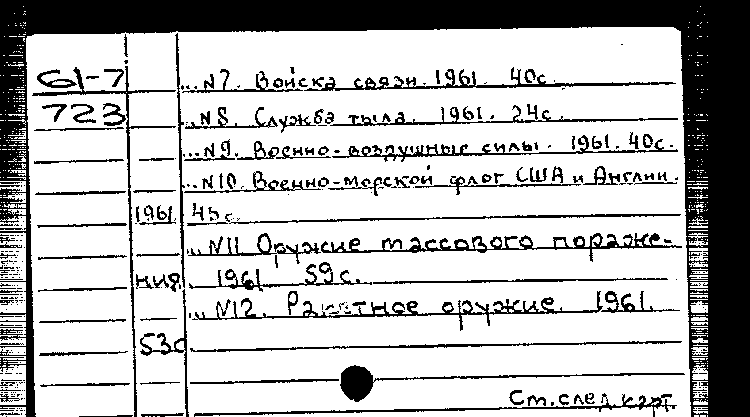 61-7 ...N7. Войска связи. 1961. 40с.
723 ...N8. Служба тыла. 1961. 24с.
...N9. Военно-воздушные силы. 1961. 40с.
...N10. Военно-морской флот США и Англии.
1961. 45с.
...N11 Оружие массового пораже-
ния. 1961 59с.
...N12. Ракетное оружие. 1961.
53с
См. след карт.